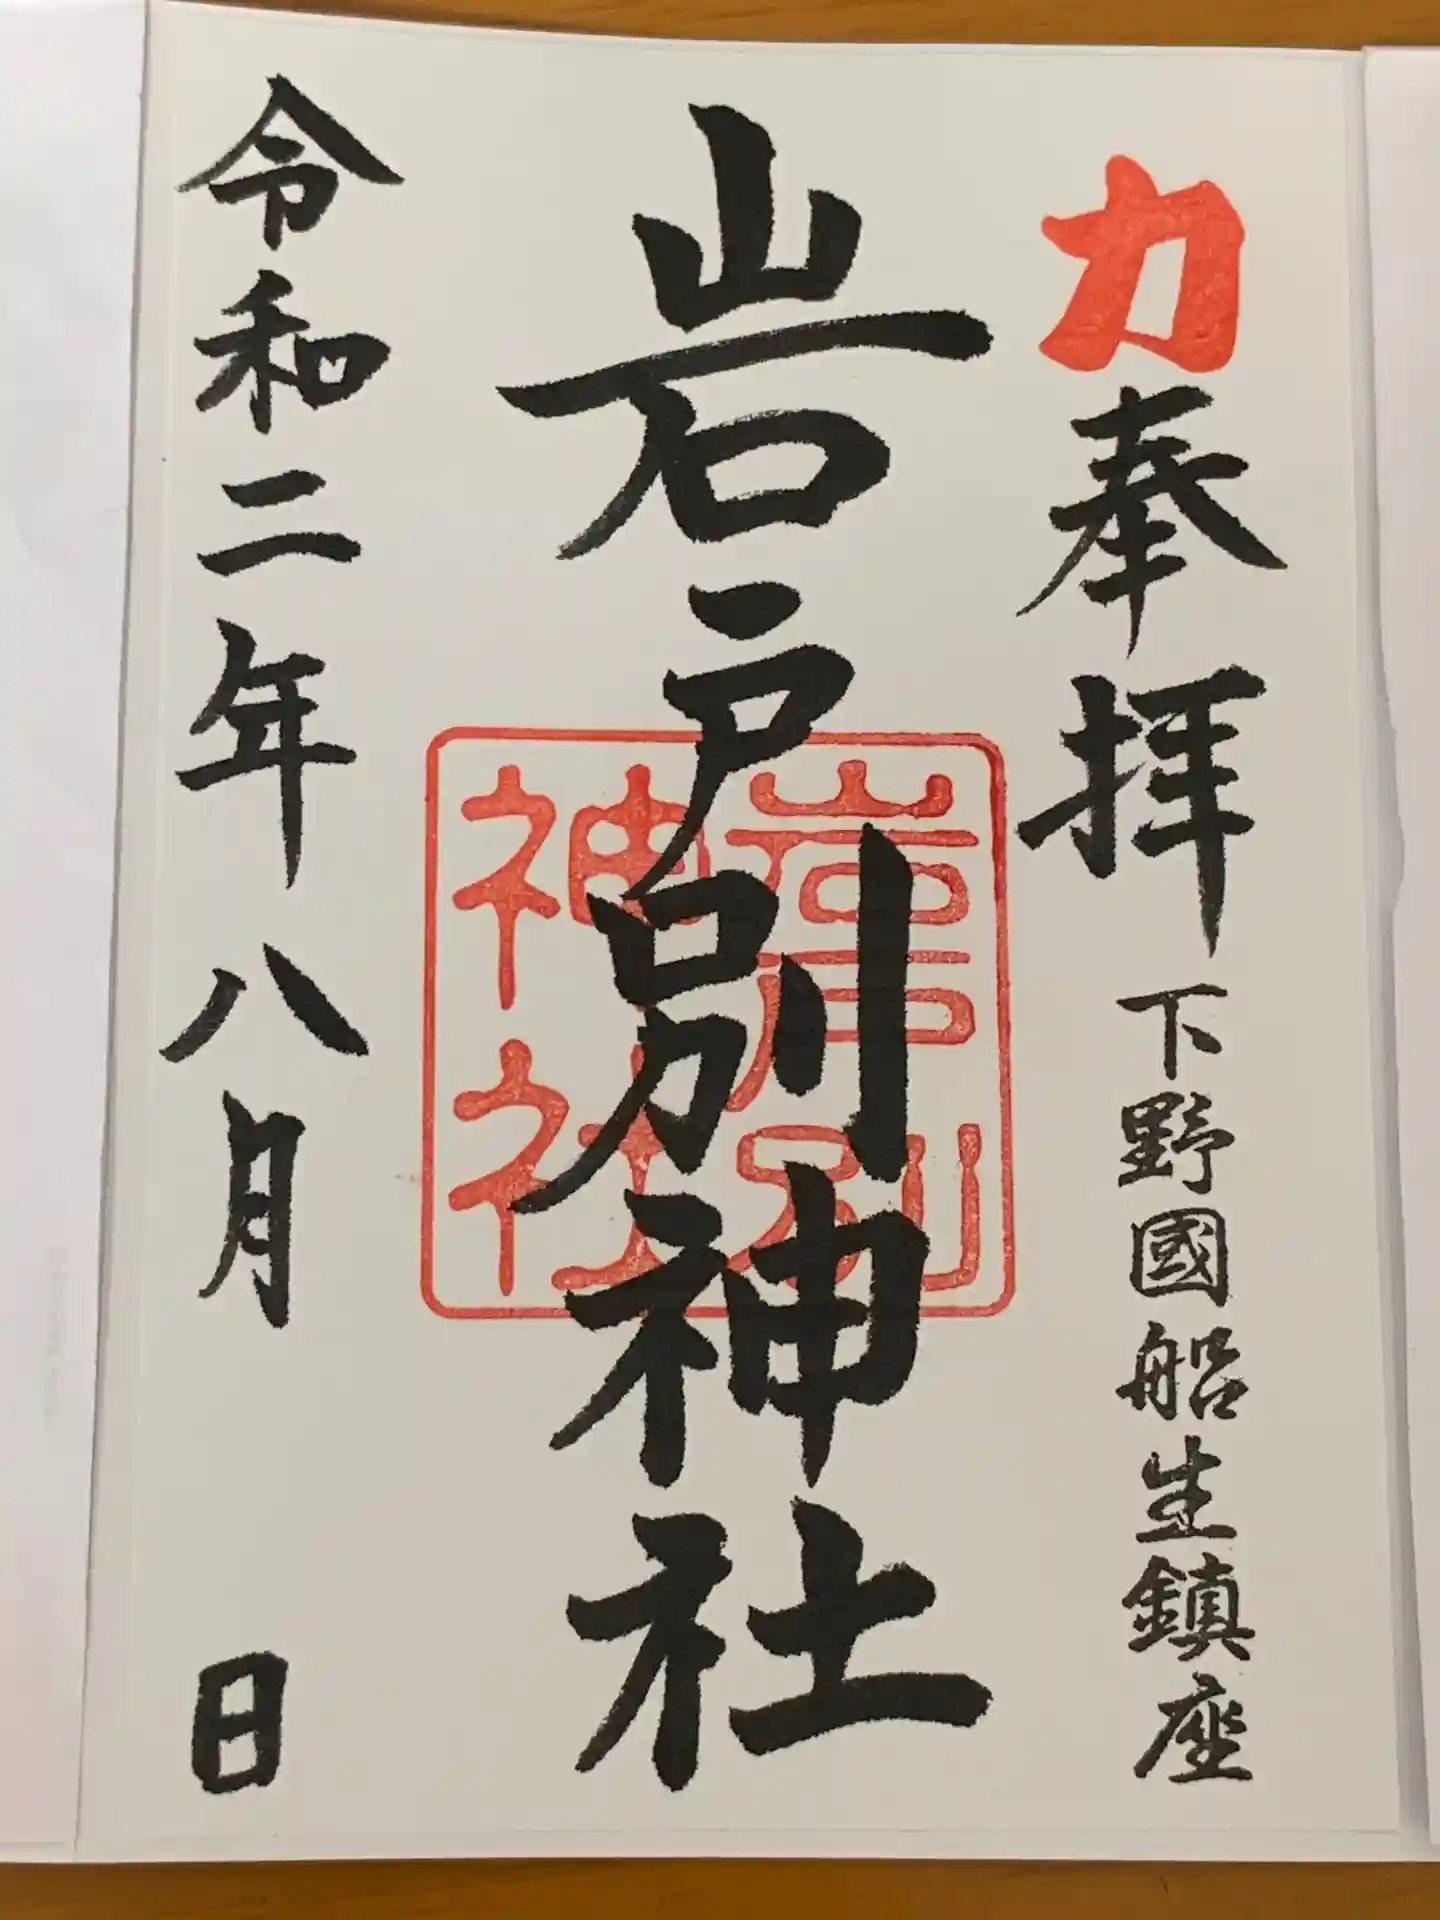 力
奉拝 下野國船生鎮座
岩戸別神社
岩戸別
神社
令和二年八月 日